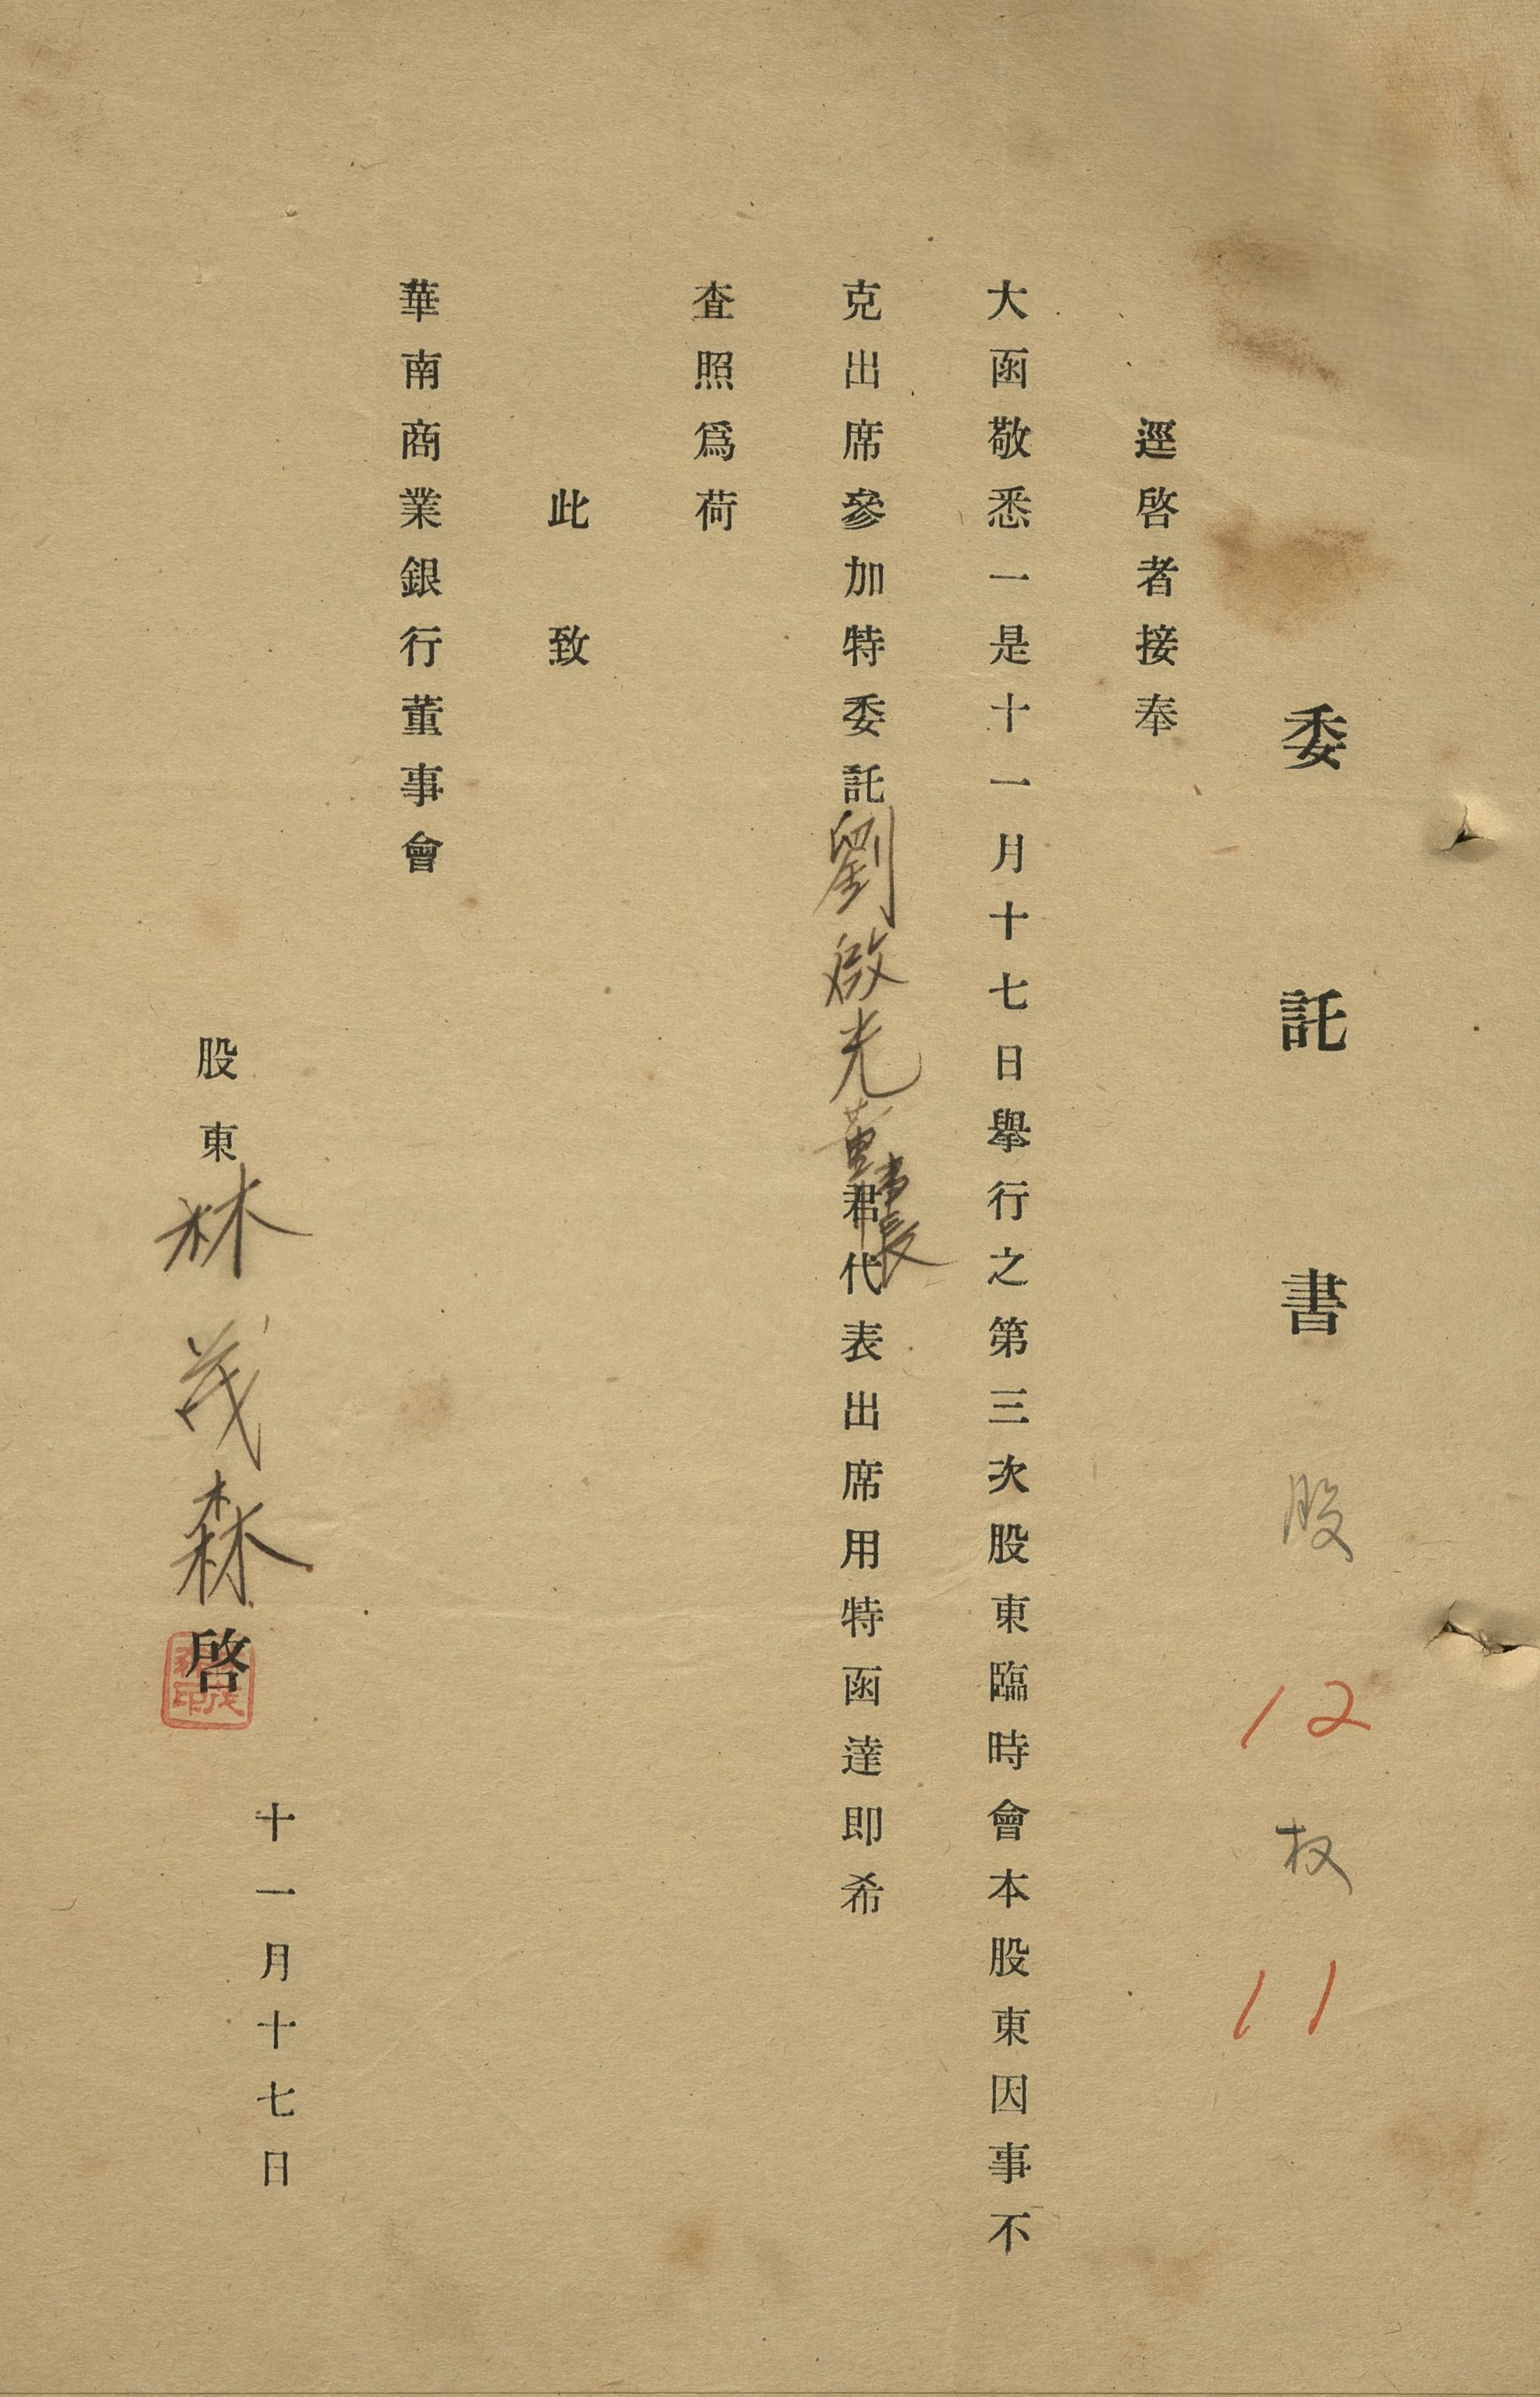 委託書 股 12 权 11
逕啓者接奉
大函敬悉一是十一月十七日舉行之第三次股東臨時會本股東因事不
克出席參加特委託劉啟光董事長君代表出席用特函達即希
査照爲荷
此致
華南商業銀行董事會
十一月十七日
股東林茂森啓